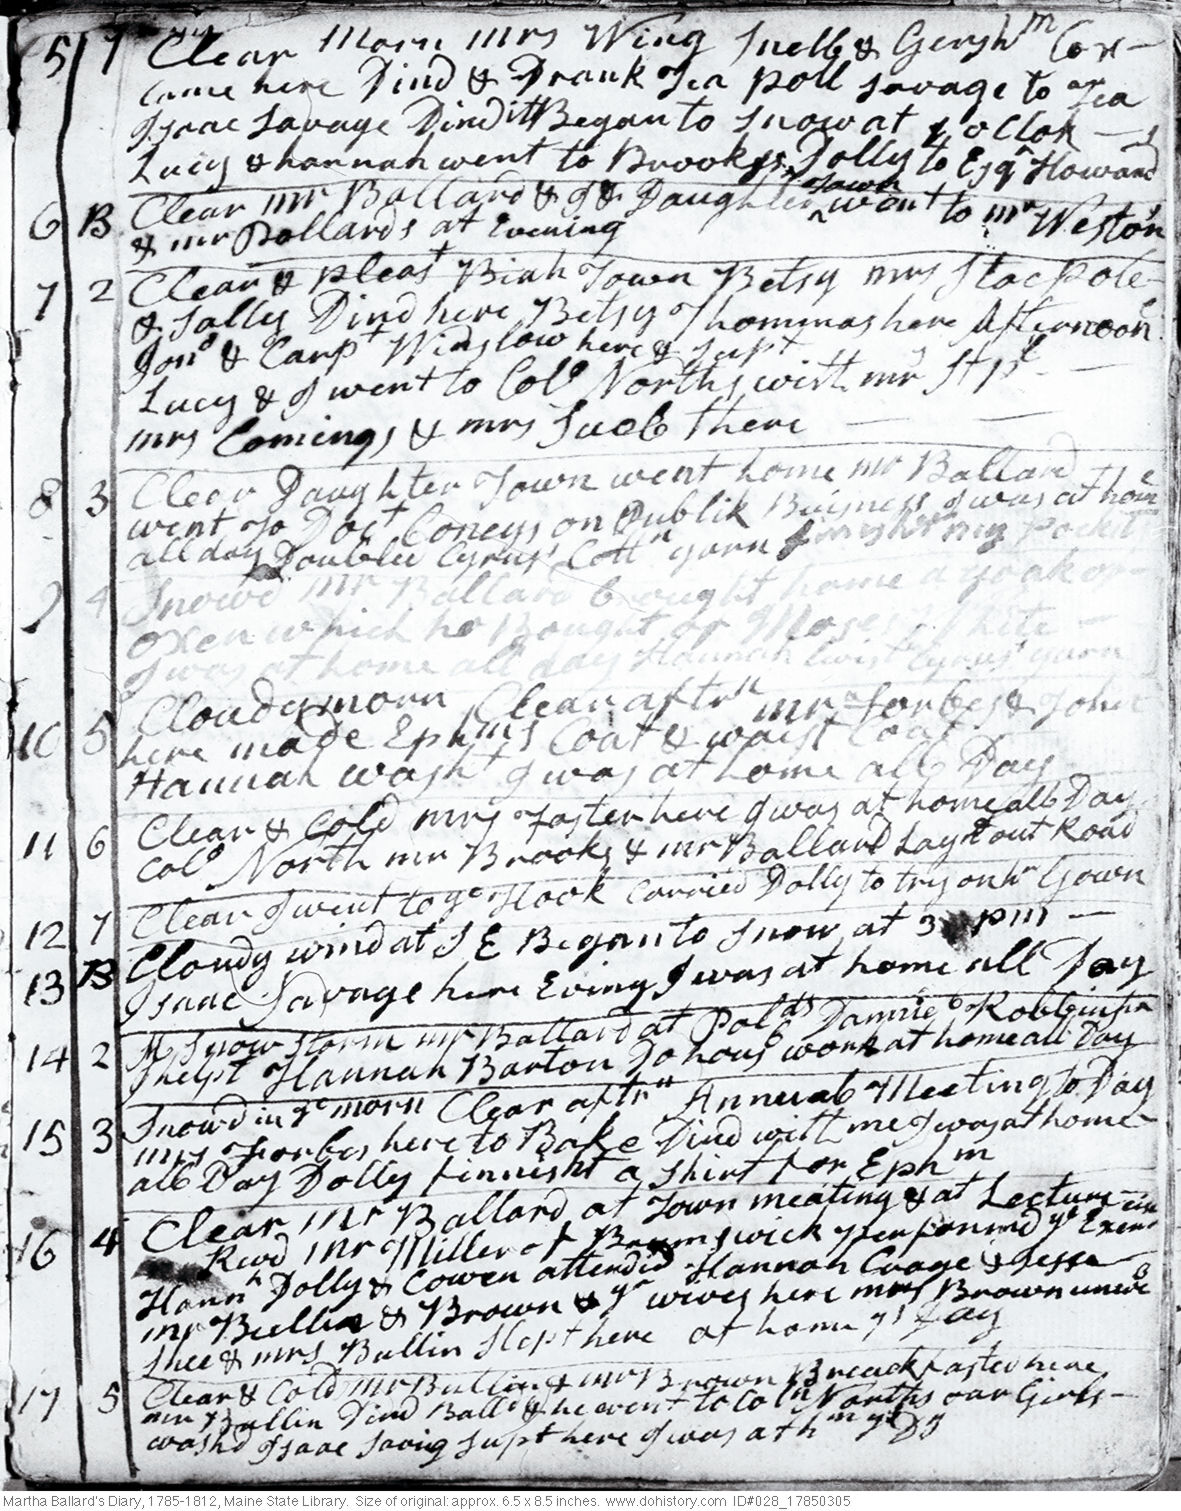 5 7 Clear Morn Mrs Wing Snell & Gersh^m Cox
came here Dind & Drank Tea Poll Savage to Tea
Isaac Savage Dind itt Began to Snow at o Clok
Lucy & hannah went to Brooks, Dolly to Esq^r Howards
6 B Clear mr Ballard & I & Daughter ^Town went to mr Weston's
& mr Pollards at Evening
7 2 Clear & pleas^t Town Betsy mrs Stacpole
& Sally Dind here Betsy Thommas here Afternoon
Jon^a & Carp^t Winslow here & Sup^t
Lucy & I went to Col^o Norths with mr
mrs Comings & mrs there
8 3 Clear Daughter Town went home mr Ballard
went to Doc^t Coneys on Publik Buisness I was at home
all day Doubled Cyrus' Cott^n yarn finisht my Pocket
9 4 Snowd mr Ballard brought home a yoak of
oxen which he Bought of Moses White
I was at home all day Hannah twist Cyrus' yarn
10 5 Cloudy morn Clear aftr^n mr Forbes & John
here made Eph^ms Coat & waist Coat
Hannah wash^t I was at home all Day
11 6 Clear & Cold mrs Foster here I was at home all Day
Col^o North mr Brooks & mr Ballard Layd out Road
12 7 Clear I went to y^e Hook Carried Dolly to try on h^r Gown
13 B Cloudy wind at S E Began to Snow at 3 pm
Isaac Savage here Evinig I was at home all Day
14 2 A Snow Storm mr Ballard at Pol^ds Robbins
helpt Hannah Barton Do hous work at home all Day
15 3 Snowd in y^e morn Clear aftr^n Annual Meeting to Day
mrs Forbes here to Bake Dind with me I was at home
all Day Dolly finnisht a Shirt for Eph^m
16 4 Clear Mr Ballard at Town meating & at Lecture
Revd Mr Miller of Brumswick performd y^e
Hann^h Dolly & Cowen attended Hannah & Jesse
mr Bullin & Brown & y^r wives here mrs Brown
Shee & mrs Bullin Slept here at home y^s Day
17 5 Clear & Cold mr Bullin & mr Brown Breackfasted here
mr Bullin Dind Ball^d & he went to Col^n Norths our Girls
washd Isaac Savig Supt here I was at h^m y^s Dy
Martha Ballard's Diary, 1785-1812, Maine State Library. Size of original: approx. 6.5 x 8.5 inches. www.dohistory.com ID#028_17850305